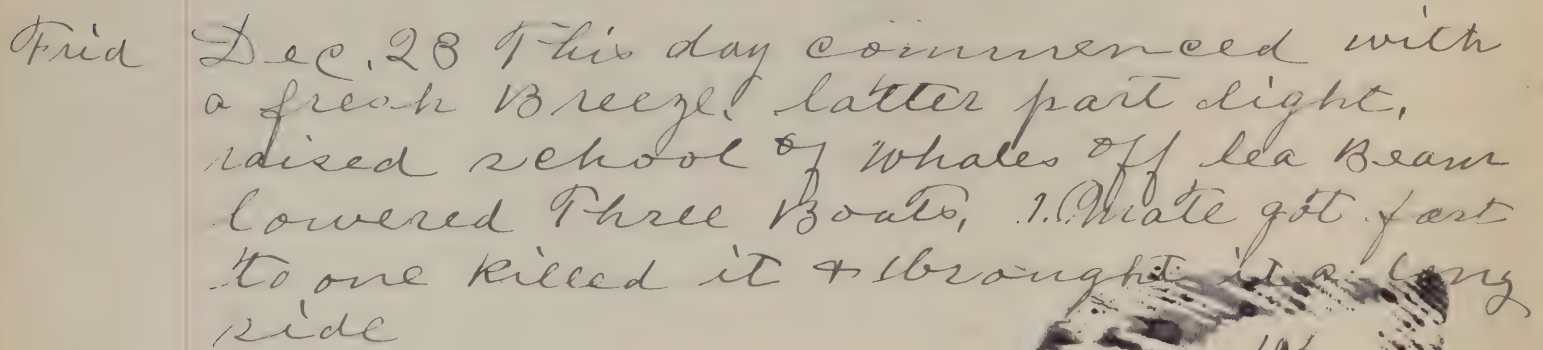 Frid Dec. 28 This day commenced with
a fresh Breeze. latter part light,
raised school of Whales off lea Beam
lowered Three Boats, 1. Mate got fast
to one Killed it & brought it a long
side